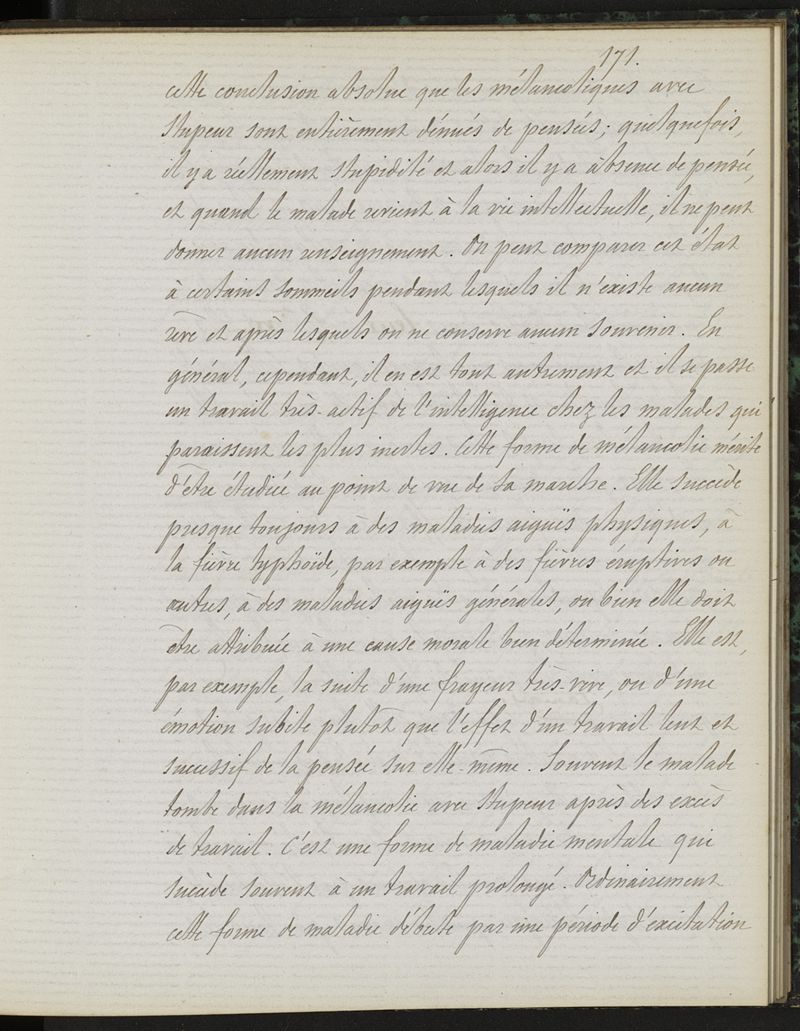 171.
cette conclusion absolue que les mélancoliques avec
stupeur sont entièrement dénués de pensées; quelquefois,
il y a réellement stupidité et alors il y a absence de pensée,
et quand le malade revient à la vie intellectuelle, il ne peut
donner aucun renseignement. On peut comparer cet état
à certains sommeils pendant lesquels il n'existe aucun
rêve et après lesquels on ne conserve aucun souvenir. En
général, cependant, il en est tout autrement et il se passe
un travail très-actif de l'intelligence chez les malades qui
paraissent les plus inertes. Cette forme de mélancolie mérite
d'être étudiée au point de vue de sa marche. Elle succède
presque toujours à des maladies aiguës physiques, à
la fièvre typhoïde, par exemple à des fièvres éruptives ou
autres, à des maladies aiguës générales, ou bien elle doit
être attribuée à une cause morale bien déterminée. Elle est,
par exemple, la suite d'une frayeur très-vive, ou d'une
émotion subite plutôt que l'effet d'un travail lent et
successif de la pensée sur elle-même. Souvent le malade
tombe dans la mélancolie avec stupeur après des excès
de travail. C'est une forme de maladie mentale qui
succède souvent à un travail prolongé. Ordinairement
cette forme de maladie débute par une période d'excitation